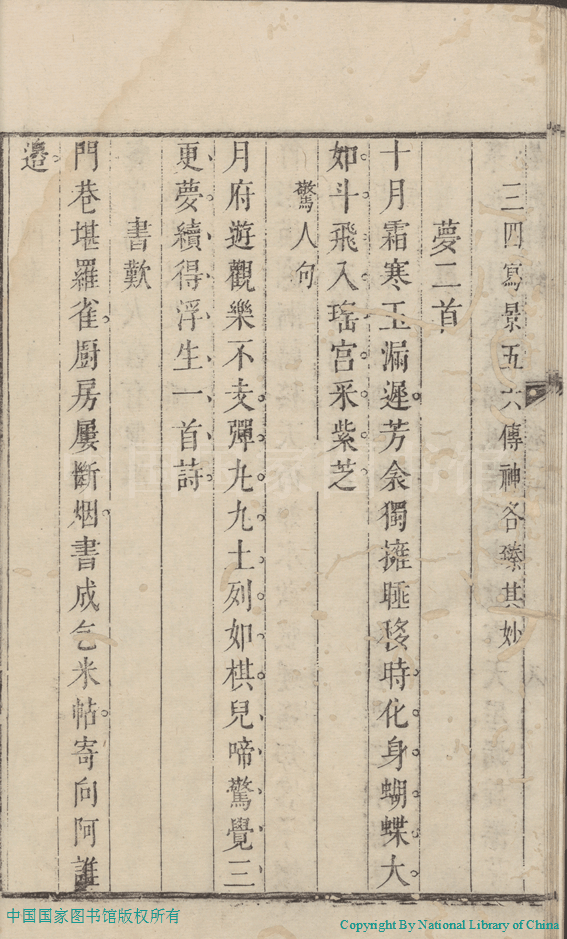 三四寫景五六傳神各臻其妙
夢二首
十月霜寒玉漏遲芳衾獨擁睡移時化身蝴蝶大
如斗飛入瑤宮采紫芝
驚人句
月府遊觀樂不支彈丸九土列如棋兒啼驚覺三
更夢續得浮生一首詩
書歎
門巷堪羅雀廚房屢斷烟書成乞米帖寄向阿誰
邊
中国国家图书馆版权所有
Copyright By National Library of China